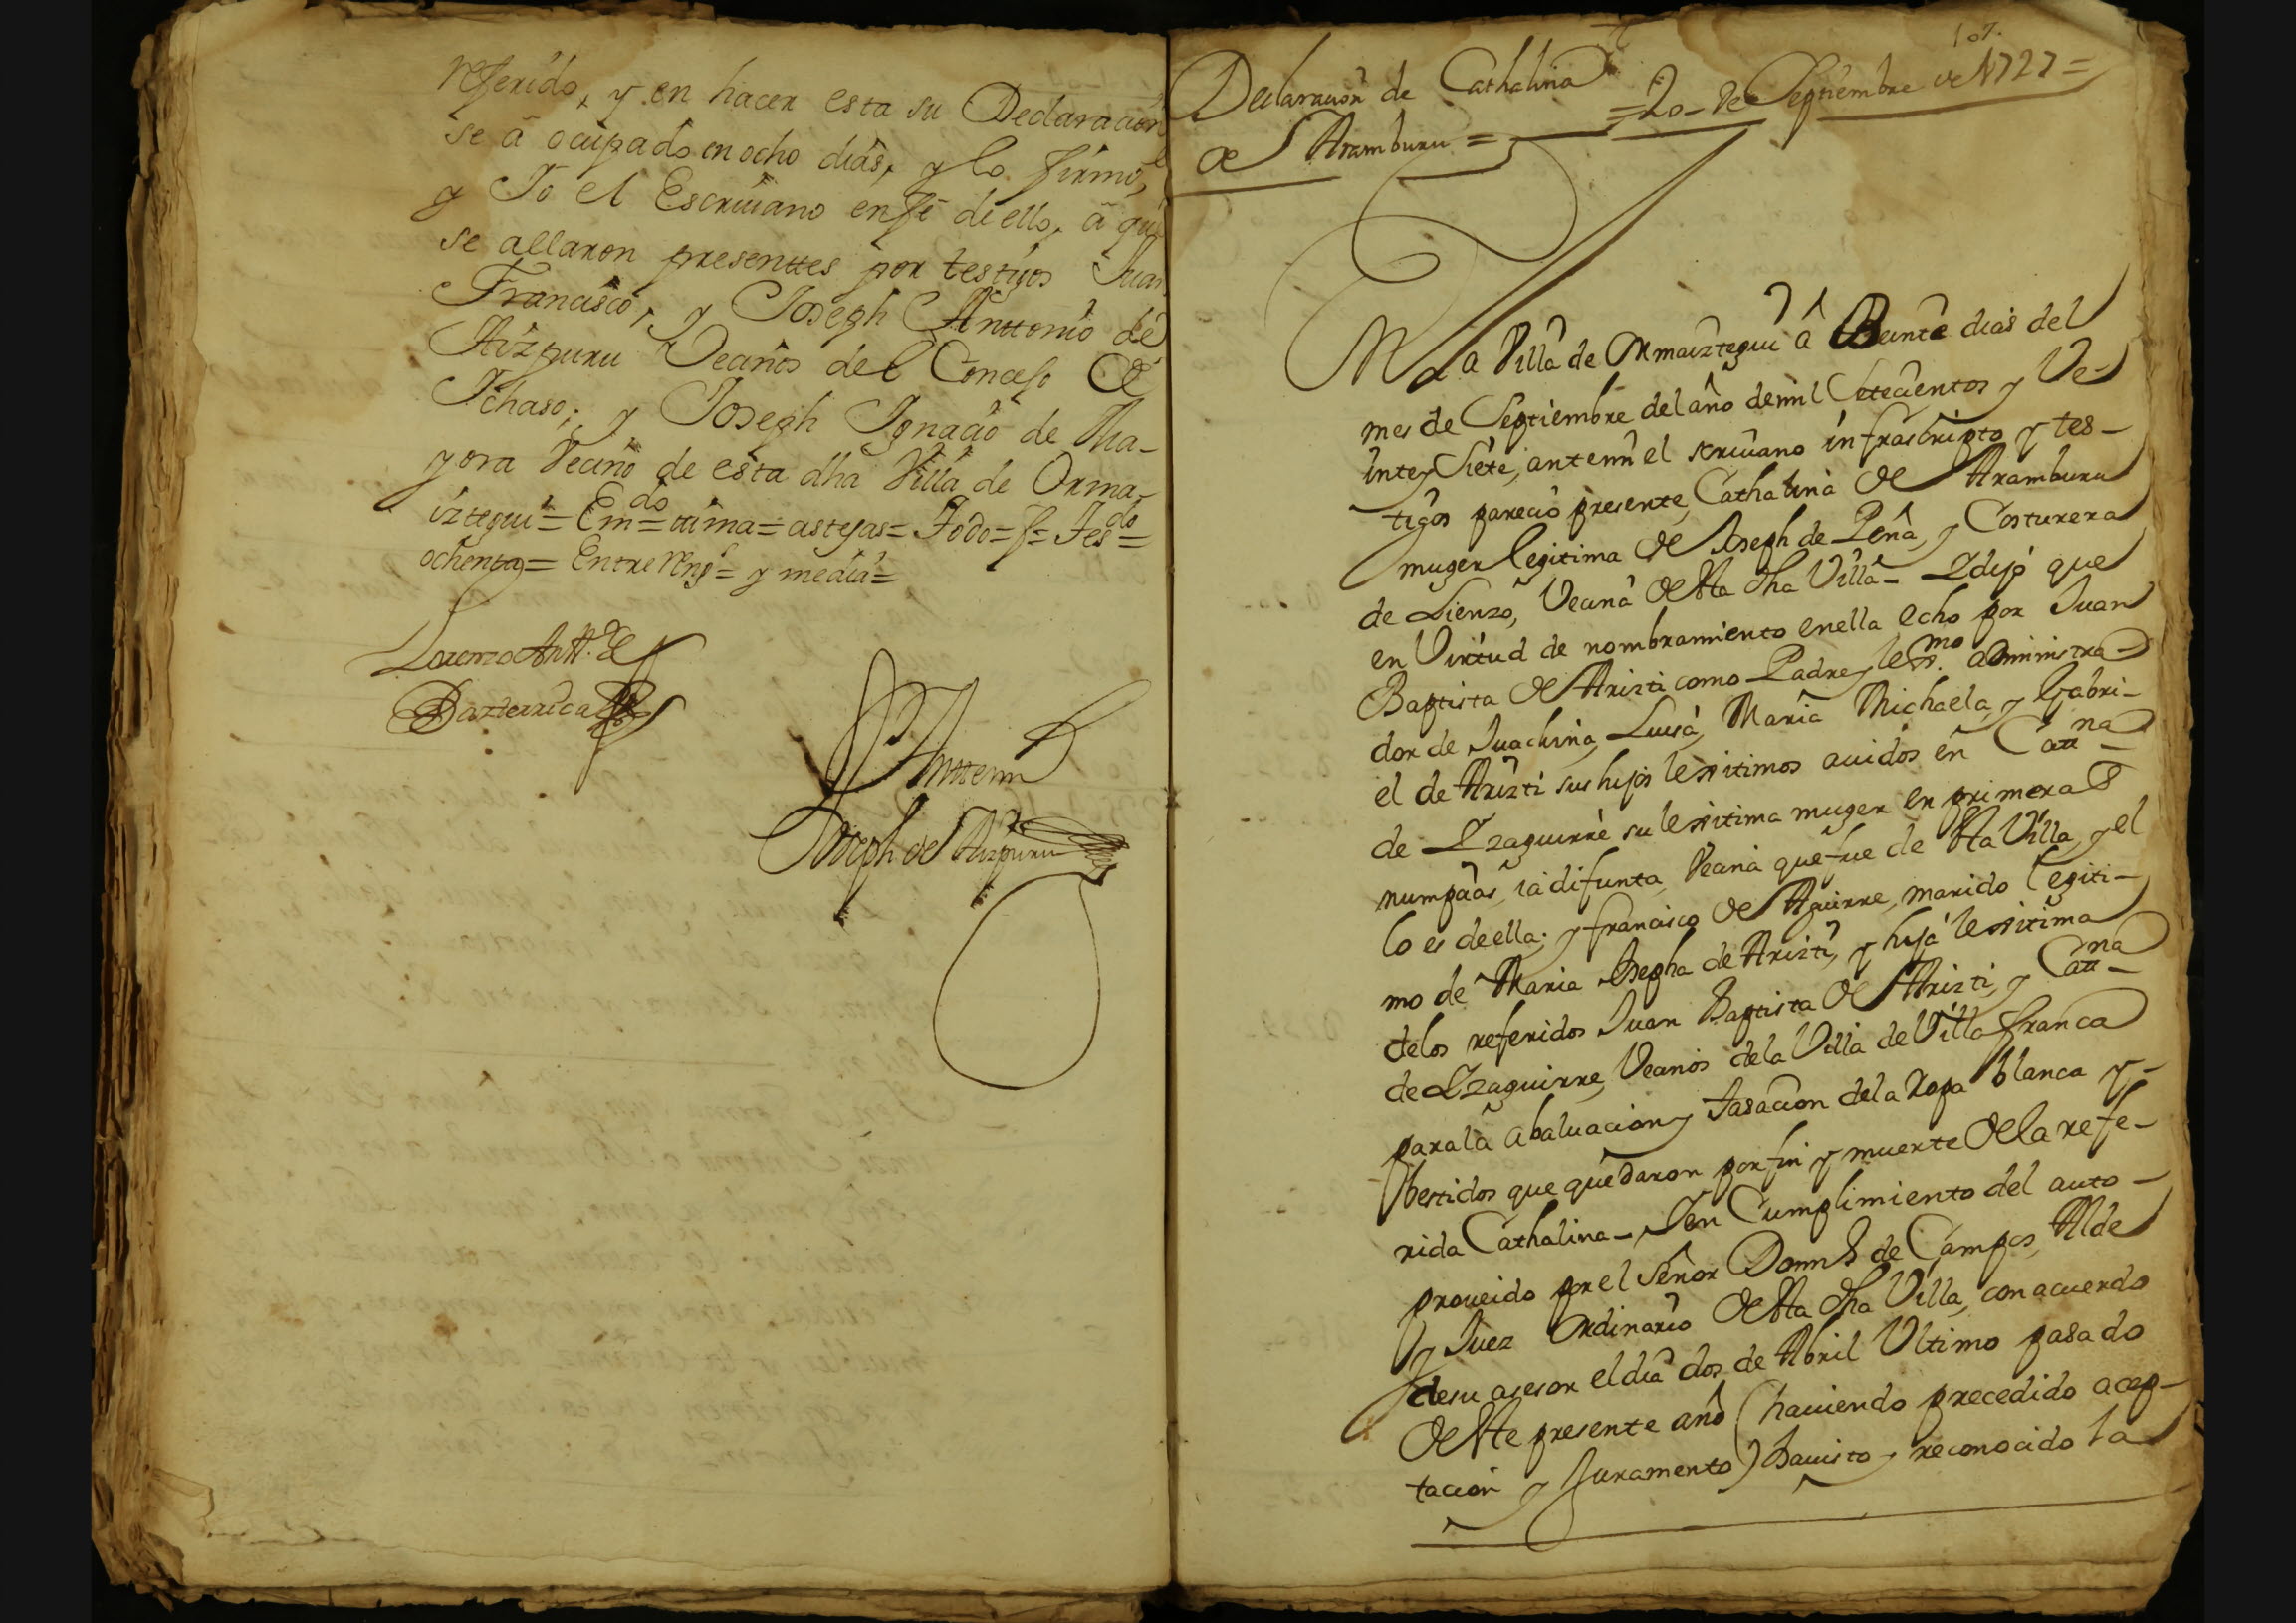 referido, y en hacer esta su Declaracion
se â ocupado en ocho dias, y lo firmó,
y Yo el Escriuano en fe de ello, â que
se allaron presenttes por testigos Juan
Francisco, y Joseph Anttonio de
Aizpuru Vecinos del Concejo de
Ichaso; y Joseph Ignacio de Ma-
yora Vecino de esta dha Villa de Orma-
iztegui = Emdo = ttima = astejas = Todo = f = Tesdo =
ochenta = Entre rengs = y media =
Lorenzo Antt. de
Bazterrica
Anttemi
Joseph de Aizpuru
107.
Declaracion de Cathalina
de Aramburu =
= 20 - de Septiembre de 1727 =
En La Villa de Ormaiztegui â Beinte dias del
mes de Septiembre del año de mil Setecientos y Ve-
inte y Siete, antemi el scriuano infrascripto y tes-
tigos pareció presente, Cathalina de Aramburu
muger legitima de Joseph de Peña, y Costurera
de Lienzo, Vecina desta dha Villa - Y dijo que
en Virtud de nombramiento en ella echo por Juan
Baptista de Arizti como Padre y lexmo. administra-
dor de Juachina, Luisa, Maria Michaela, y Gabri-
el de Arizti sus hijos lexitimos auidos en Cattna
de Yzaguirre su lexitima muger en primeras
numpcias, ia difunta, Vecina que fue de sta Villa, y el
lo es de ella; y francisco de Aguirre, marido legiti-
mo de Maria Josepha de Arizti, y hija lexitima
delos referidos Juan Baptista de Arizti, y Cattna
de Yzaguirre, Vecinos de la Villa de Villafranca
para la abaluacion y tasacion de la Ropa blanca y
bestidos que quedaron por fin y muerte de la refe-
rida Cathalina - Y en Cumplimiento del auto -
proueido por el Señor Domingo de Campos, Alcalde
y Juez Ordinario desta dha Villa, con acuerdo
de su asesor el dia dos de Abril Ultimo pasado
deste presente año (hauiendo precedido acep-
tacion y Juramento) ha uisto y reconocido la